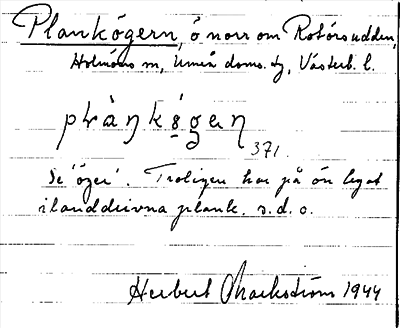 Plankögern, ö norr om Rotörsudden,
Holmöns sn, Umeå doms. tg, Västerb. l.
plànkö́gen
371.
Se 'öger'. Troligen har på ön legat
ilanddrivna plank. s.d.o.
Herbert Markström 1944